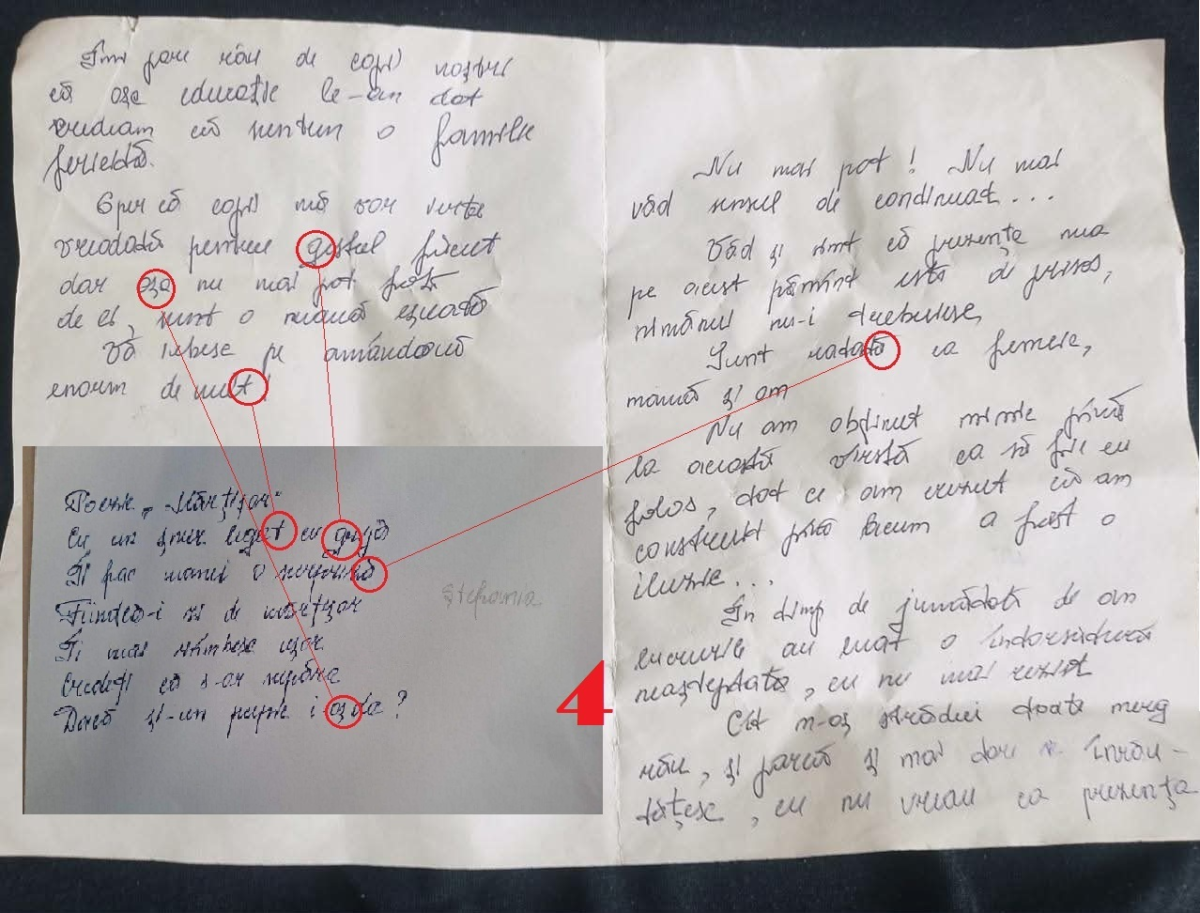 Îmi pare rău de copii noștri
că așa educație le-am dat
credeam că suntem o familie
fericită.
Sper că copii mă vor ierta
vreodată pentru gestul făcut
dar așa nu mai pot față
de ei, sunt o mamă eșuată
Vă iubesc pe amândouă
enorm de mult!
Nu mai pot! Nu mai
văd sensul de continuat...
Văd și simt că prezența mea
pe acest pământ este de prisos,
nimănui nu-i trebuiesc,
Sunt ca femeie,
mamă și om
Nu am obținut nimic până
la această vârstă ca să fie cu
folos, tot ce am crezut că am
construit până acum a fost o
iluzie...
În timp de jumătate de an
lucrurile au luat o întorsătură
neașteptată, eu nu mai rezist
Cât m-aș strădui toate merg
rău, și parcă și mai tare se înrău-
tățesc, eu nu vreau ca prezența
Poezie „Mărțișor"
Cu un șnur legat cu grijă
Îi fac mamei o surpriză
Fiindcă-i zi de mărțișor
Îi mai zâmbesc ușor
Credeți că s-ar supăra
Dacă și-un pupic i-aș da?
Ștefania
4